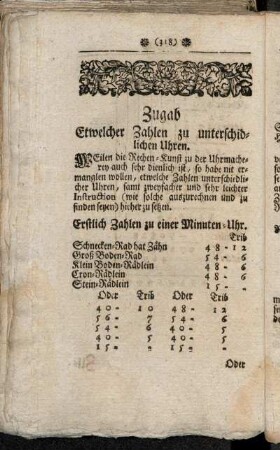 (318)
Zugab
Etwelcher Zahlen zu unterschid-
lichen Uhren.
WEilen die Rechen-Kunst zu der Uhrmache-
rey auch sehr dienlich ist, so habe nit er-
manglen wollen, etwelche Zahlen unterschiedli-
cher Uhren, samt zweyfacher und sehr leichter
Instruction (wie solche auszurechnen und zu
finden seyen) hieher zu setzen.
Erstlich Zahlen zu einer Minuten-Uhr.
Trib
Schnecken-Rad hat Zähn 48-12
Groß Boden-Rad 54-6
Klein Boden-Rädlein 48-6
Cron-Rädlein 48-6
Stein-Rädlein 15-"
Oder Trib Oder Trib
40- 10 48- 12
56- 7 54- 6
54- 6 40- 5
40- 5 40- 5
15- " 15- "
Oder